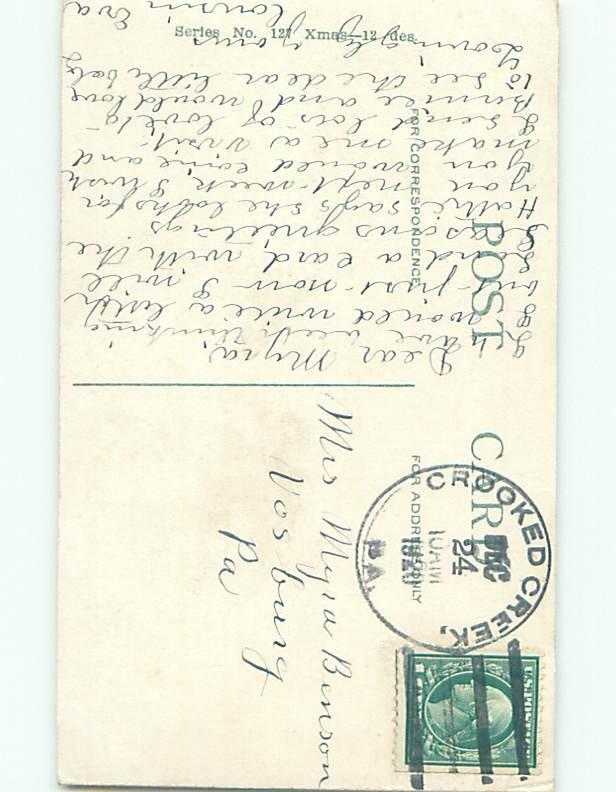 Series No. 127 Xmas—12 des.
POST CARD
FOR CORRESPONDENCE
FOR ADDRESS ONLY
Dear Myra,
I have been thinking
I would write a letter
but just now I will
send a card with the
Seasons greetings
Hattie says she looks for
you next week I wish
you would come and
make me a visit
I send lots of love to
and would love
to see the dear little baby
Lovingly yours
Cousin Eva
Mrs Myra Benson
Vosburg
Pa
CROOKED CREEK,
DEC
24
10AM
PA.
U.S. POSTAGE